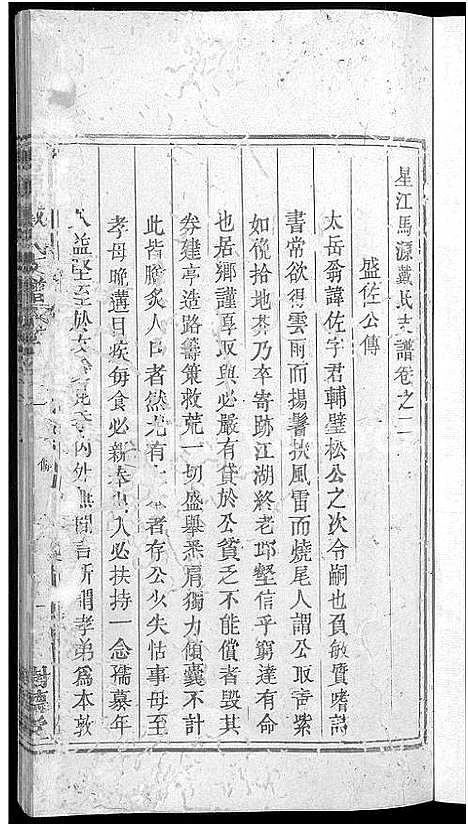 星江馬源戴氏支譜卷之二
盛佐公傳
太岳翁諱佐字君輔璧松公之次令嗣也負敏質嗜詩
書常欲得雲雨而揚鬐挾風雷而燒尾人謂公取青紫
如俛拾地芥乃卒寄跡江湖終老邱壑信乎窮達有命
也居鄉謹厚取與必嚴有貸於公貧乏不能償者毀其
券建亭造路籌策救荒一切盛舉悉肩獨力傾囊不計
此皆膾炙人口者然尤有大本者存公少失怙事母至
孝母晩遘目疾每食必親奉出入必扶持一念孺慕年
益堅至於友內外無間言所謂孝弟為本敦
樹德堂